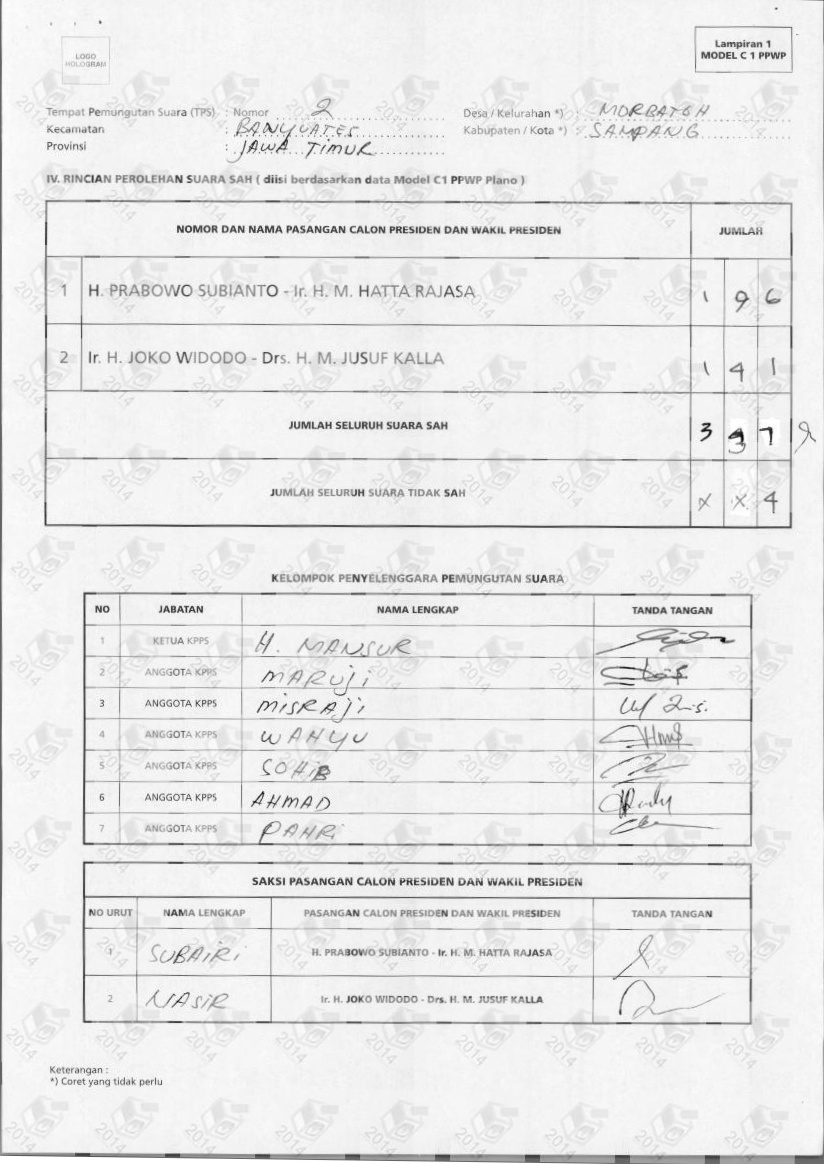 LOGO
HOLOGRAM
Lampiran 1
MODEL C 1 PPWP
Tempat Pemungutan Suara (TPS) : Nomor 2 Desa / Kelurahan *) : MORBATOH
Kecamatan : BANYUATES Kabupaten / Kota *) : SAMPANG
Provinsi : JAWA TIMUR
IV. RINCIAN PEROLEHAN SUARA SAH ( diisi berdasarkan data Model C1 PPWP Plano )
NOMOR DAN NAMA PASANGAN CALON PRESIDEN DAN WAKIL PRESIDEN JUMLAH
1 H. PRABOWO SUBIANTO - Ir. H. M. HATTA RAJASA 1 9 6
2 Ir. H. JOKO WIDODO - Drs. H. M. JUSUF KALLA 1 4 1
JUMLAH SELURUH SUARA SAH 3 3 7
JUMLAH SELURUH SUARA TIDAK SAH X X 4
KELOMPOK PENYELENGGARA PEMUNGUTAN SUARA
NO JABATAN NAMA LENGKAP TANDA TANGAN
1 KETUA KPPS H. MANSUR
2 ANGGOTA KPPS MARUJI
3 ANGGOTA KPPS MISRAJI
4 ANGGOTA KPPS WAHYU
5 ANGGOTA KPPS SOHIB
6 ANGGOTA KPPS AHMAD
7 ANGGOTA KPPS PAHRI
SAKSI PASANGAN CALON PRESIDEN DAN WAKIL PRESIDEN
NO URUT NAMA LENGKAP PASANGAN CALON PRESIDEN DAN WAKIL PRESIDEN TANDA TANGAN
1 SUBAIRI H. PRABOWO SUBIANTO - Ir. H. M. HATTA RAJASA
2 NASIR Ir. H. JOKO WIDODO - Drs. H. M. JUSUF KALLA
Keterangan :
*) Coret yang tidak perlu